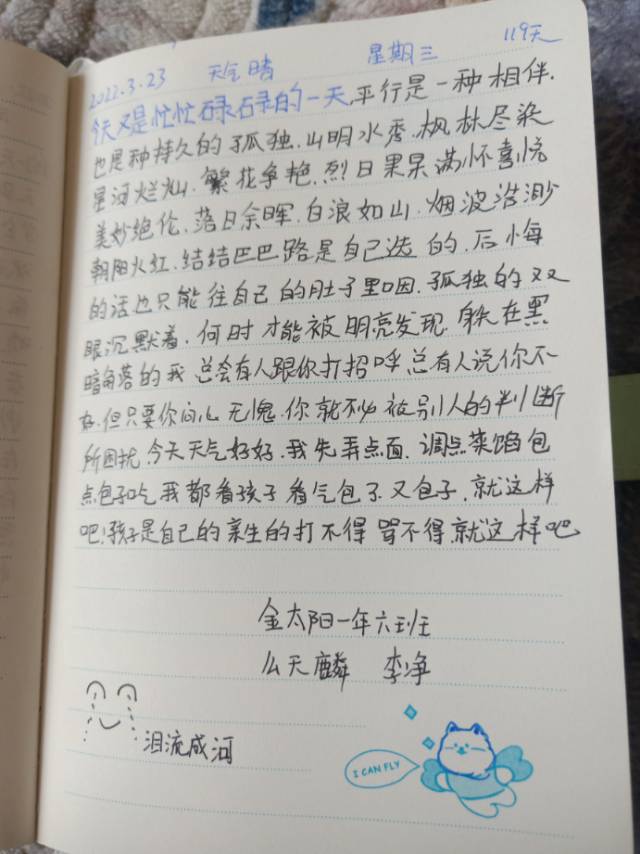 2022.3.23 天气晴 星期三 119天
今天又是忙忙碌碌的一天.平行是一种相伴.
也是种持久的孤独.山明水秀.枫林尽染
星河烂灿.繁花争艳.烈日果呆满怀喜悦
美妙绝伦.落日余晖.白浪如山.烟波浩渺
朝阳火红.结结巴巴路是自己选的.后悔
的话也只能往自己的肚子里咽.孤独的双
眼沉默着.何时才能被明亮发现.躲在黑
暗角落的我 总会有人跟你打招呼总有人说你不
好.但只要你问心无愧.你就不必被别人的判断
所困扰.今天天气好好.我先弄点面.调点菜馅包
点包子吃我都看孩子看气包了.又包子.就这样
吧!孩子是自己的亲生的打不得骂不得.就这样吧
金太阳一年六班
么天麟 李净
泪流成河
I CAN FLY